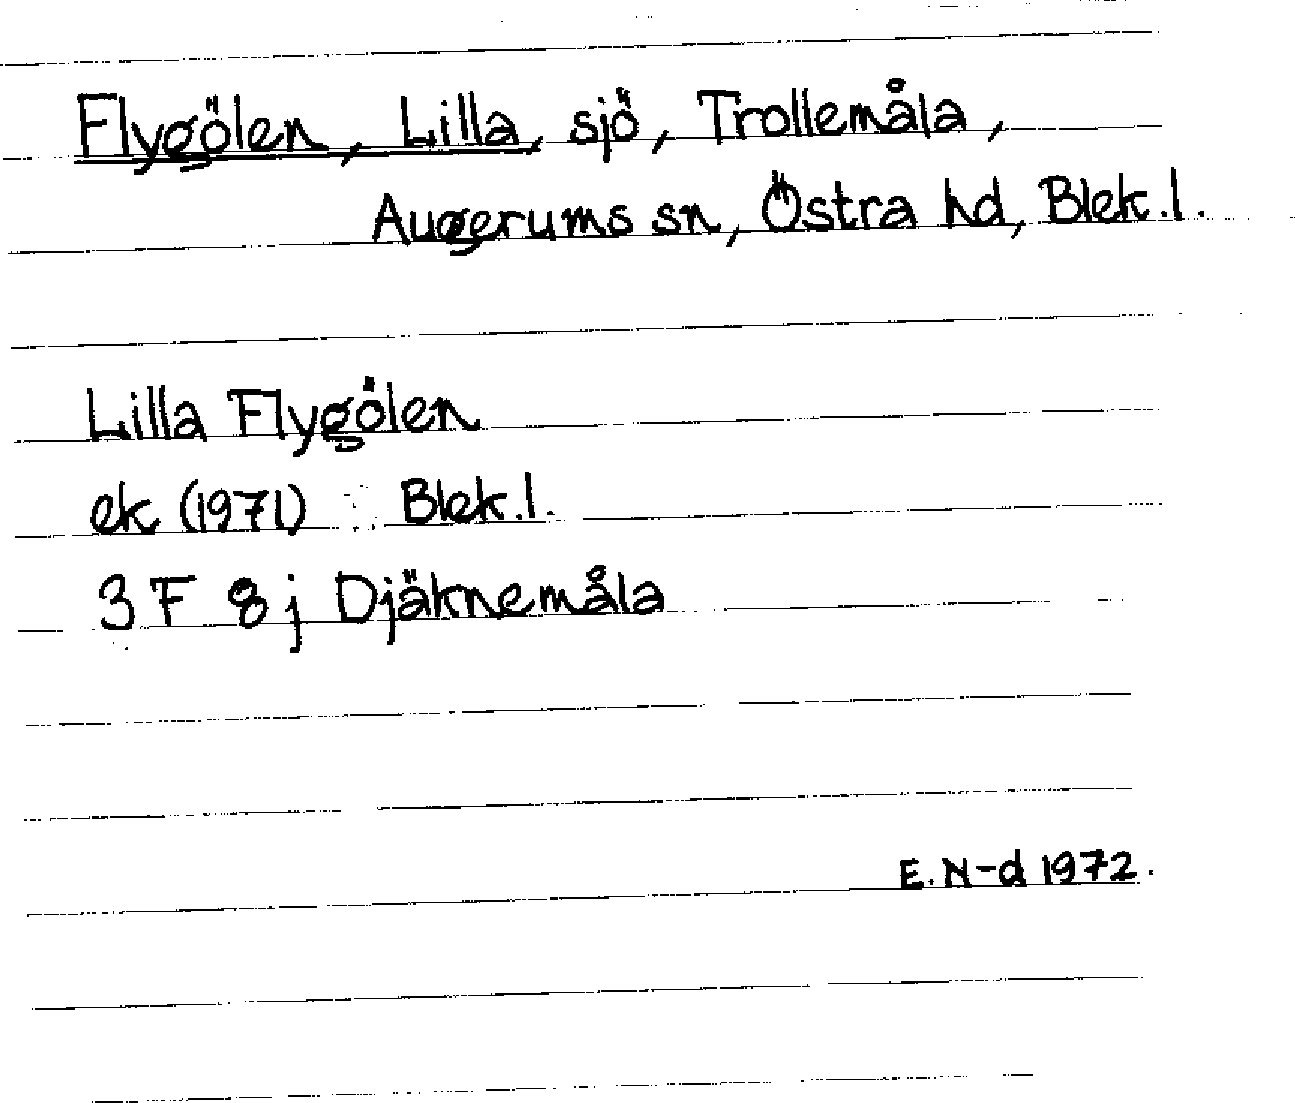 Flygölen, Lilla, sjö, Trollemåla,
Augerums sn, Östra hd, Blek.l.
Lilla Flygölen
ek (1971) Blek.l.
3 F 8 j Djäknemåla
E. N-d 1972.